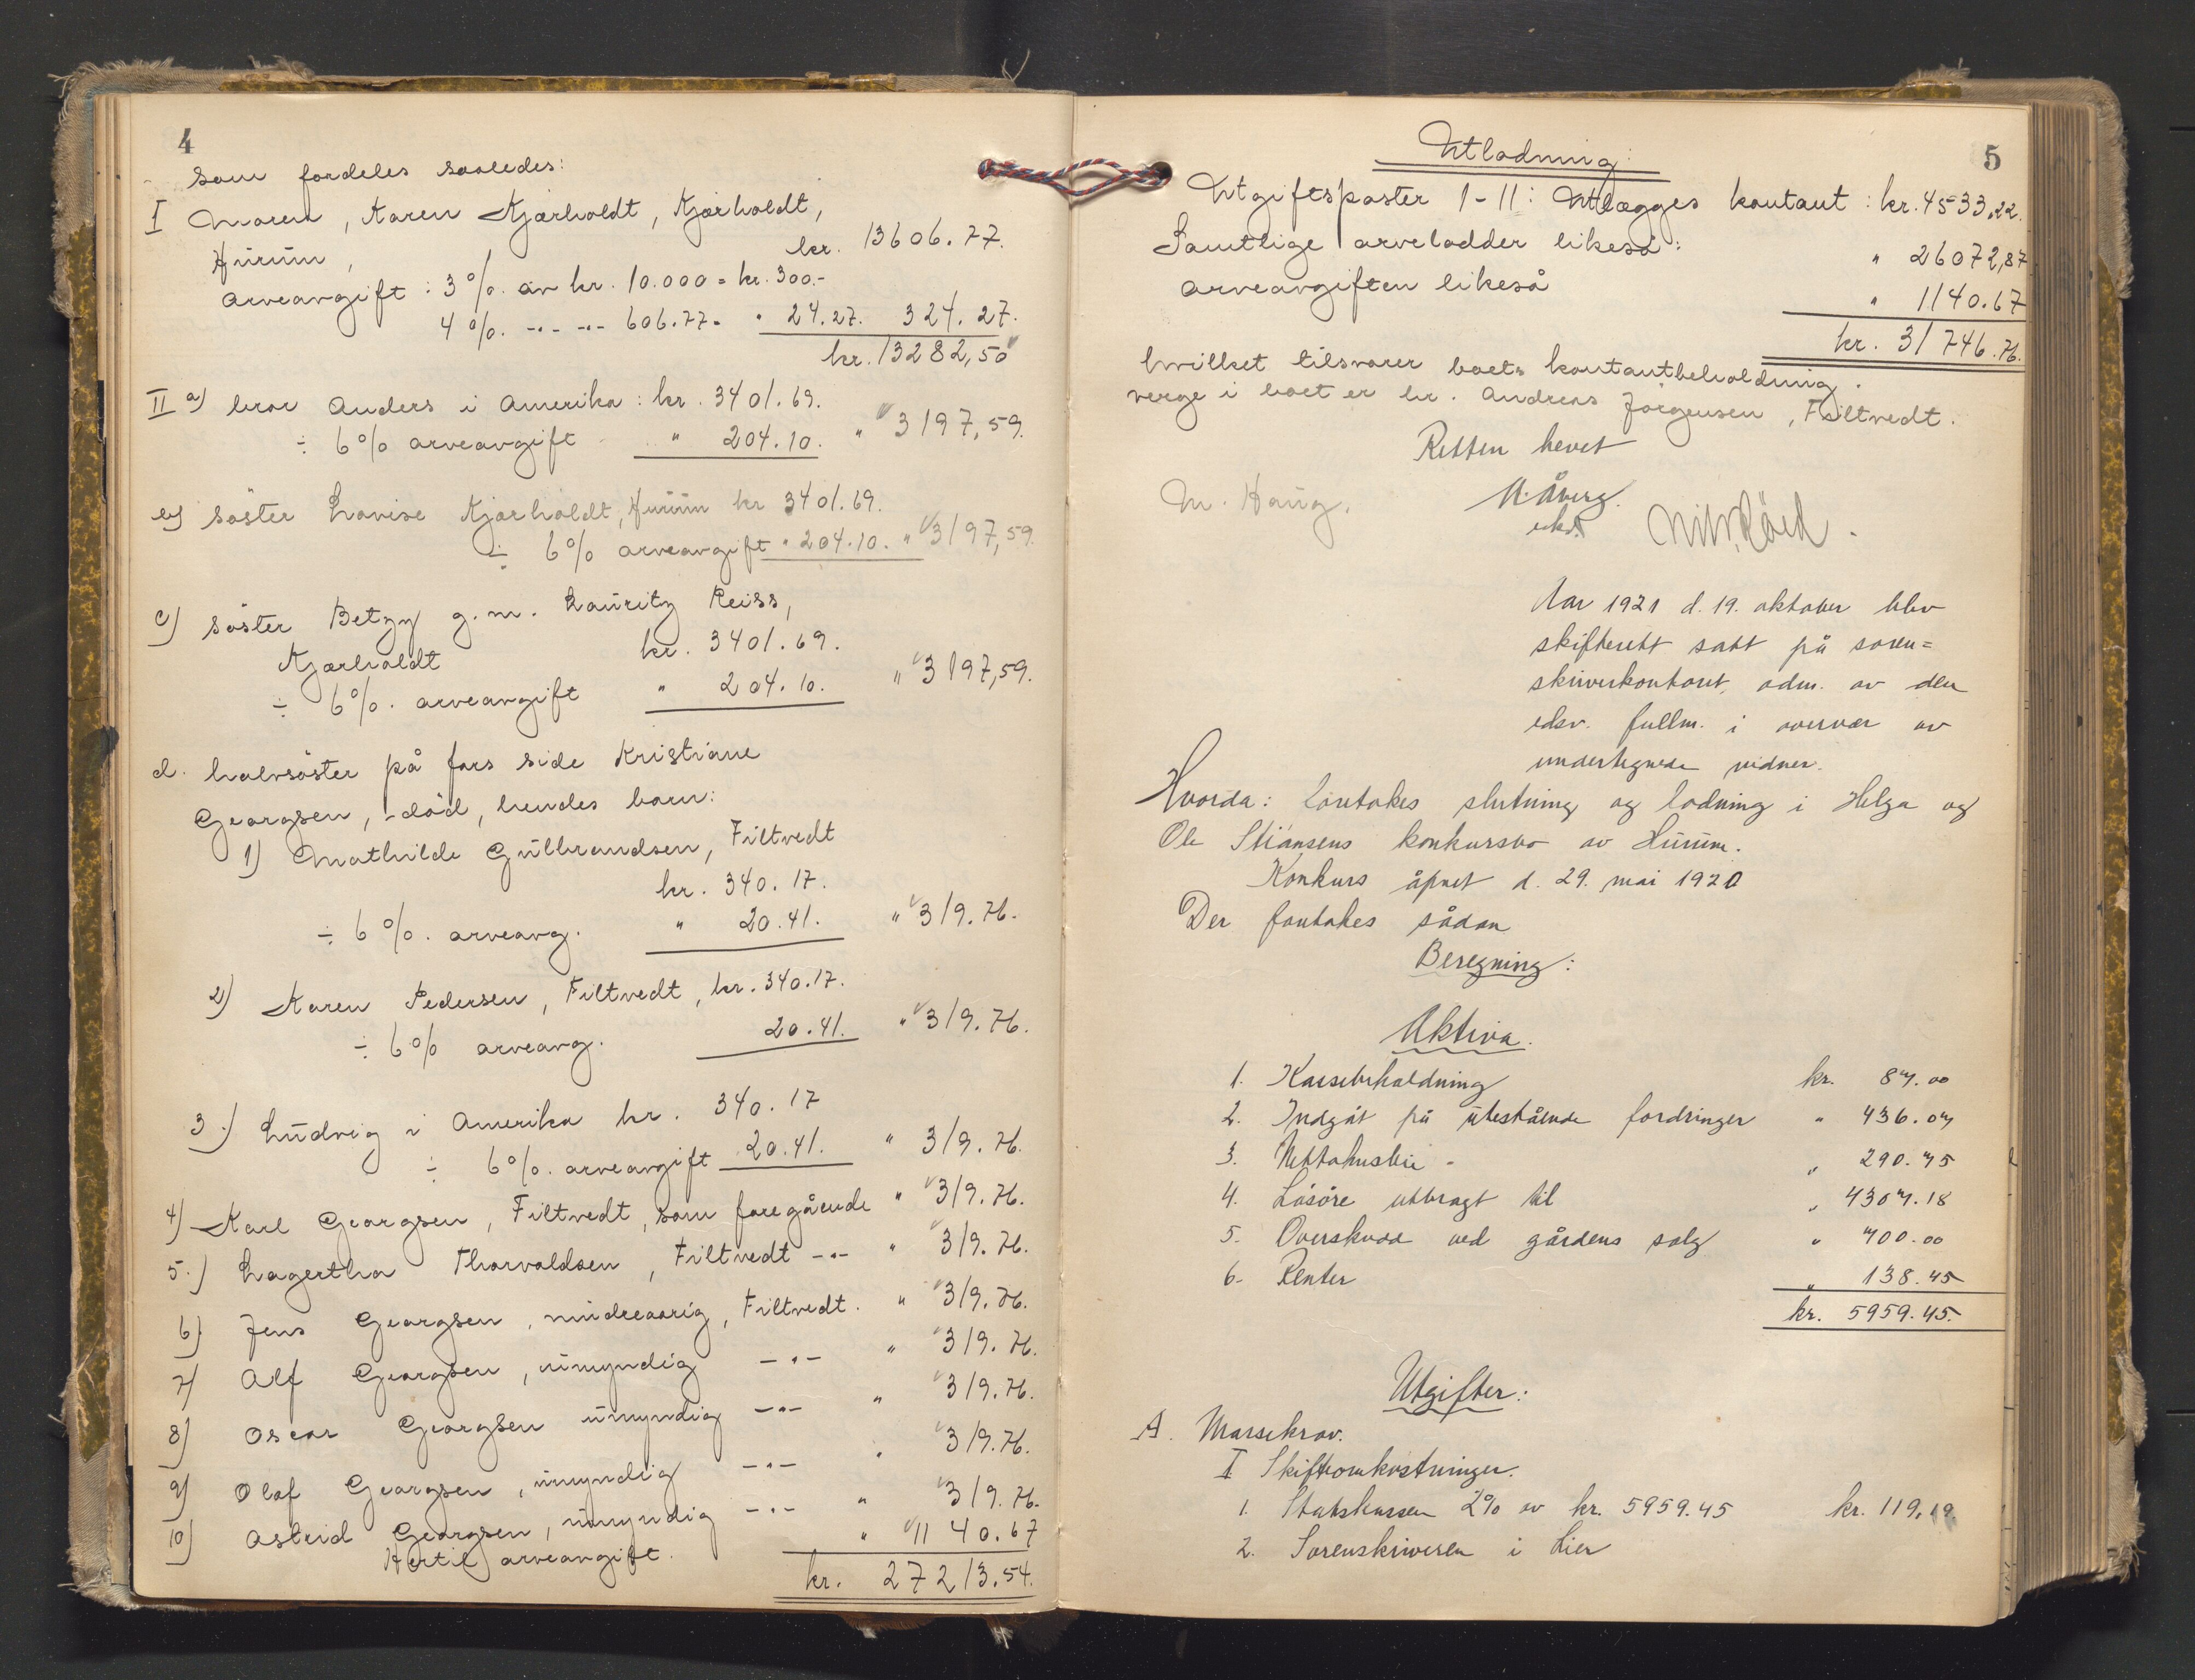 4
som fordeles saaledes:
I Maren, Karen Kjærholdt, Kjærholdt,
Hurum, kr. 13606.77.
Arveavgift: 3%. av kr. 10.000 = kr. 300.-
4%. -"- -"- 606.77 = " 24.27. 324.27.
kr. 13282,50
II a) bror Anders i Amerika: kr. 3401.69.
÷ 6% arveavgift " 204.10. " 3197,59.
b) söster Lovise Kjærholdt, Hurum kr 3401.69.
÷ 6% arveavgift " 204.10. " 3197,59.
c) söster Betzy g.m. Lauritz Reiss,
Kjærholdt kr. 3401.69.
÷ 6%. arveavgift " 204.10. " 3197,59.
d. halvsöster på fars side Kristiane
Georgsen, död, hendes barn:
1) Mathilde Gulbrandsen, Filtvedt
kr. 340.17.
÷ 6%. arveavg. " 20.41. " 319.76.
2) Karen Pedersen, Filtvedt, kr. 340.17.
÷ 6% arveavg. 20.41. " 319.76.
3.) Ludvig i Amerika kr. 340.17
÷ 6%. arveavgift 20.41. " 319.76.
4) Karl Georgsen, Filtvedt, som foregående " 319.76.
5.) Lagertha Thorvaldsen, Filtvedt -"- " 319.76.
6) Jens Georgsen, mindreaarig, Filtvedt. " 319.76.
7) Alf Georgsen, umyndig -"- " 319.76.
8) Oscar Georgsen umyndig -"- " 319.76.
9) Olaf Georgsen, umyndig -"- " 319.76.
10) Astrid Georgsen, umyndig -"- " 319.76.
Hertil arveavgift. " 1140.67
kr. 27213.54.
5
Utlodning:
Utgiftsposter 1-11: Utlægges kontant: kr. 4533,22.
Samtlige arvelodder likeså: " 26072,87
Arveavgiften likeså " 1140.67
kr. 31746.76.
hvilket tilsvarer boets kontantbeholdning.
verge i boet er hr. Andreas Jörgensen, Filtvedt.
Retten hevet
M. Haug. N. Åberg
Aar 1921 d. 19. oktober blev
skifterett satt på soren=
skriverkontoret, adm. av den
edsv. fullm. i overvær av
undertegnede vidner.
Hvorda: foretokes slutning og lodning i Helga og
Ole Stiansens konkursbo av Hurum.
Konkurs åpnet d. 29. mai 1920
Der foretokes sådan
Beregning:
Aktiva.
1. Kassebeholdning kr. 87.00
2. Indgåt på utestående fordringer " 436.07
3. Nettohusleie - " 290.75
4. Lösöre utbragt til " 4307.18
5. Overskudd ved gårdens salg " 700.00
6. Renter " 138.45
kr. 5959.45.
Utgifter:
A. Massekrav.
I Skifteomkostninger.
1. Statskassen 2% av kr. 5959.45 kr. 119.19
2. Sorenskriveren i Lier